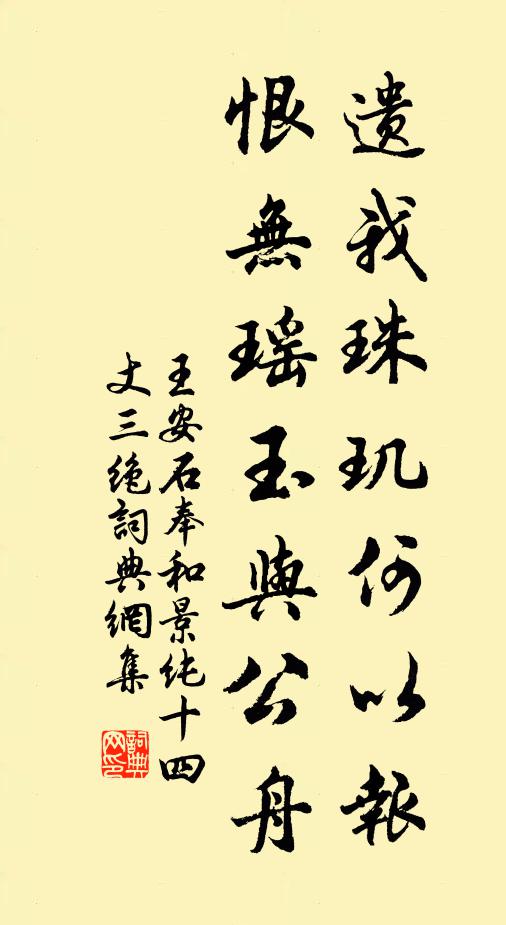 遺我珠玑何以報
恨無瑶玉與公舟
王安石奉和景纯十四
丈三绝詞典網集
詞典网印